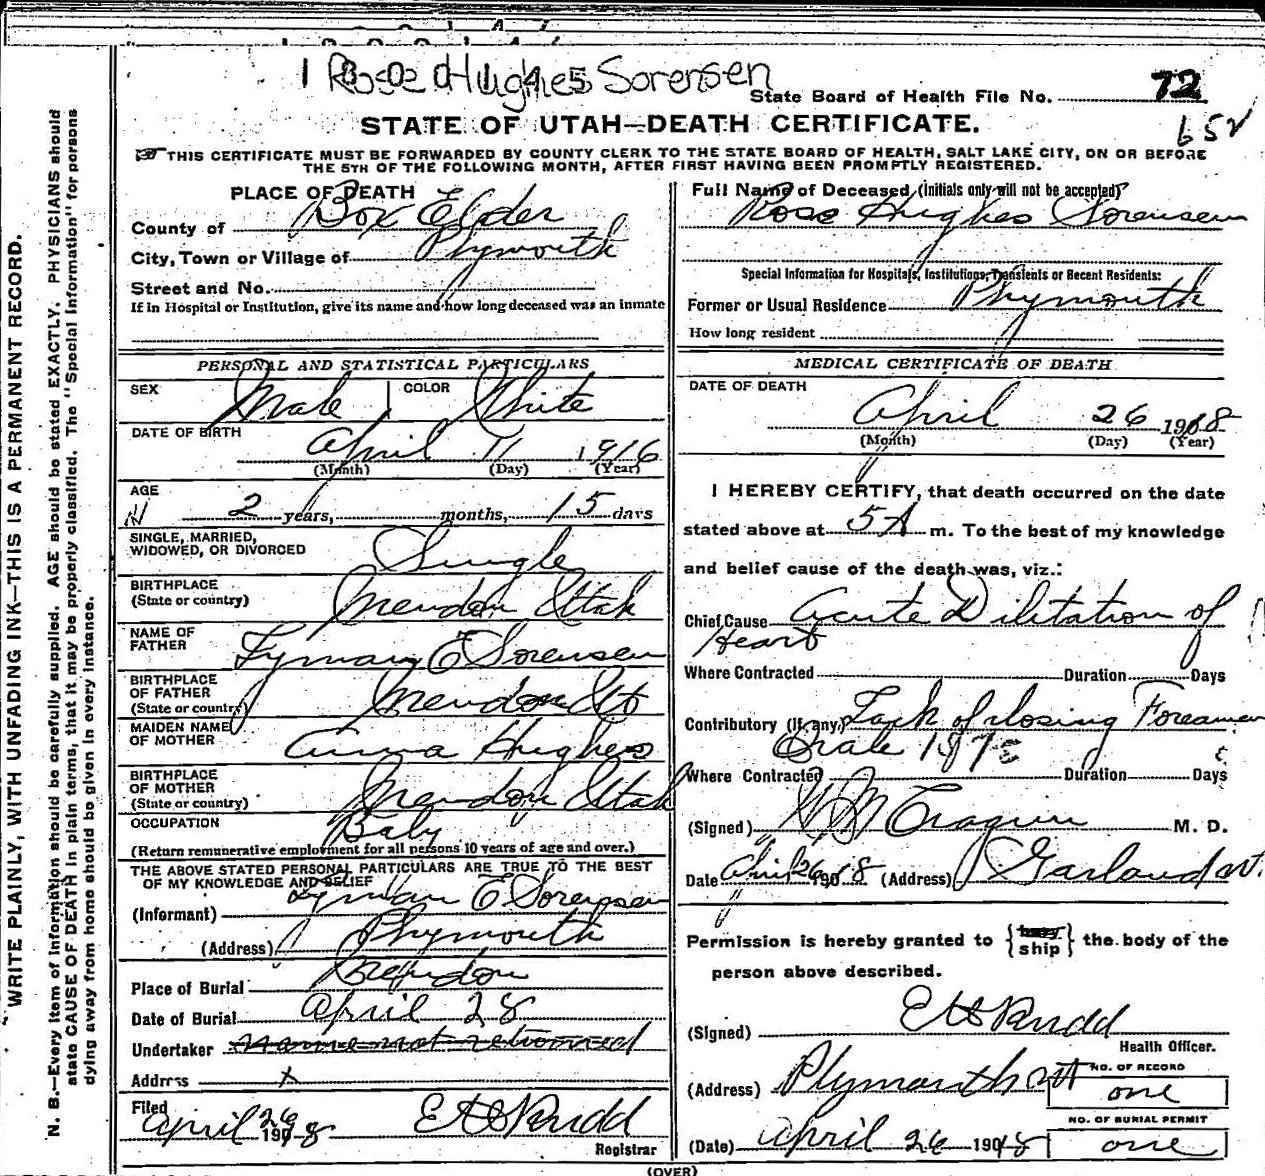 Rose Hughes Sorensen
State Board of Health File No. 72
652
STATE OF UTAH—DEATH CERTIFICATE.
THIS CERTIFICATE MUST BE FORWARDED BY COUNTY CLERK TO THE STATE BOARD OF HEALTH, SALT LAKE CITY, ON OR BEFORE
THE 5TH OF THE FOLLOWING MONTH, AFTER FIRST HAVING BEEN PROMPTLY REGISTERED.
WRITE PLAINLY, WITH UNFADING INK—THIS IS A PERMANENT RECORD.
N. B.—Every item of information should be carefully supplied. AGE should be stated EXACTLY. PHYSICIANS should
state CAUSE OF DEATH in plain terms, that it may be properly classified. The "Special Information" for persons
dying away from home should be given in every instance.
PLACE OF DEATH
County of Box Elder
City, Town or Village of Plymouth
Street and No.
If in Hospital or Institution, give its name and how long deceased was an inmate
PERSONAL AND STATISTICAL PARTICULARS
SEX Male COLOR White
DATE OF BIRTH April 11 1916
(Month) (Day) (Year)
AGE
2 years, months, 15 days
SINGLE, MARRIED,
WIDOWED, OR DIVORCED Single
BIRTHPLACE
(State or country) Mendon Utah
NAME OF
FATHER Lyman E Sorensen
BIRTHPLACE
OF FATHER
(State or country) Mendon Ut
MAIDEN NAME
OF MOTHER Anna Hughes
BIRTHPLACE
OF MOTHER
(State or country) Mendon Utah
OCCUPATION Baby
(Return remunerative employment for all persons 10 years of age and over.)
THE ABOVE STATED PERSONAL PARTICULARS ARE TRUE TO THE BEST
OF MY KNOWLEDGE AND BELIEF
(Informant) Lyman E Sorensen
(Address) Plymouth
Place of Burial Mendon
Date of Burial April 28
Undertaker name not returned
Address x
Filed
April 26 1908 E H Rudd
Registrar
Full Name of Deceased (initials only will not be accepted)
Rose Hughes Sorensen
Special Information for Hospitals, Institutions, Transients or Recent Residents:
Former or Usual Residence Plymouth
How long resident
MEDICAL CERTIFICATE OF DEATH
DATE OF DEATH
April 26 1918
(Month) (Day) (Year)
I HEREBY CERTIFY, that death occurred on the date
stated above at 5 A m. To the best of my knowledge
and belief cause of the death was, viz.:
Chief Cause Acute Dilitation of
Heart
Where Contracted Duration Days
Contributory (if any) Lack of closing Foreamen
Orale
Where Contracted Duration Days
(Signed) Cragun M. D.
Date April 26 1918 (Address) Garland Ut.
Permission is hereby granted to { bury ship } the body of the
person above described.
(Signed) E H Rudd
Health Officer.
(Address) Plymouth Ut
NO. OF RECORD
one
NO. OF BURIAL PERMIT
(Date) April 26 1918 one
(OVER)